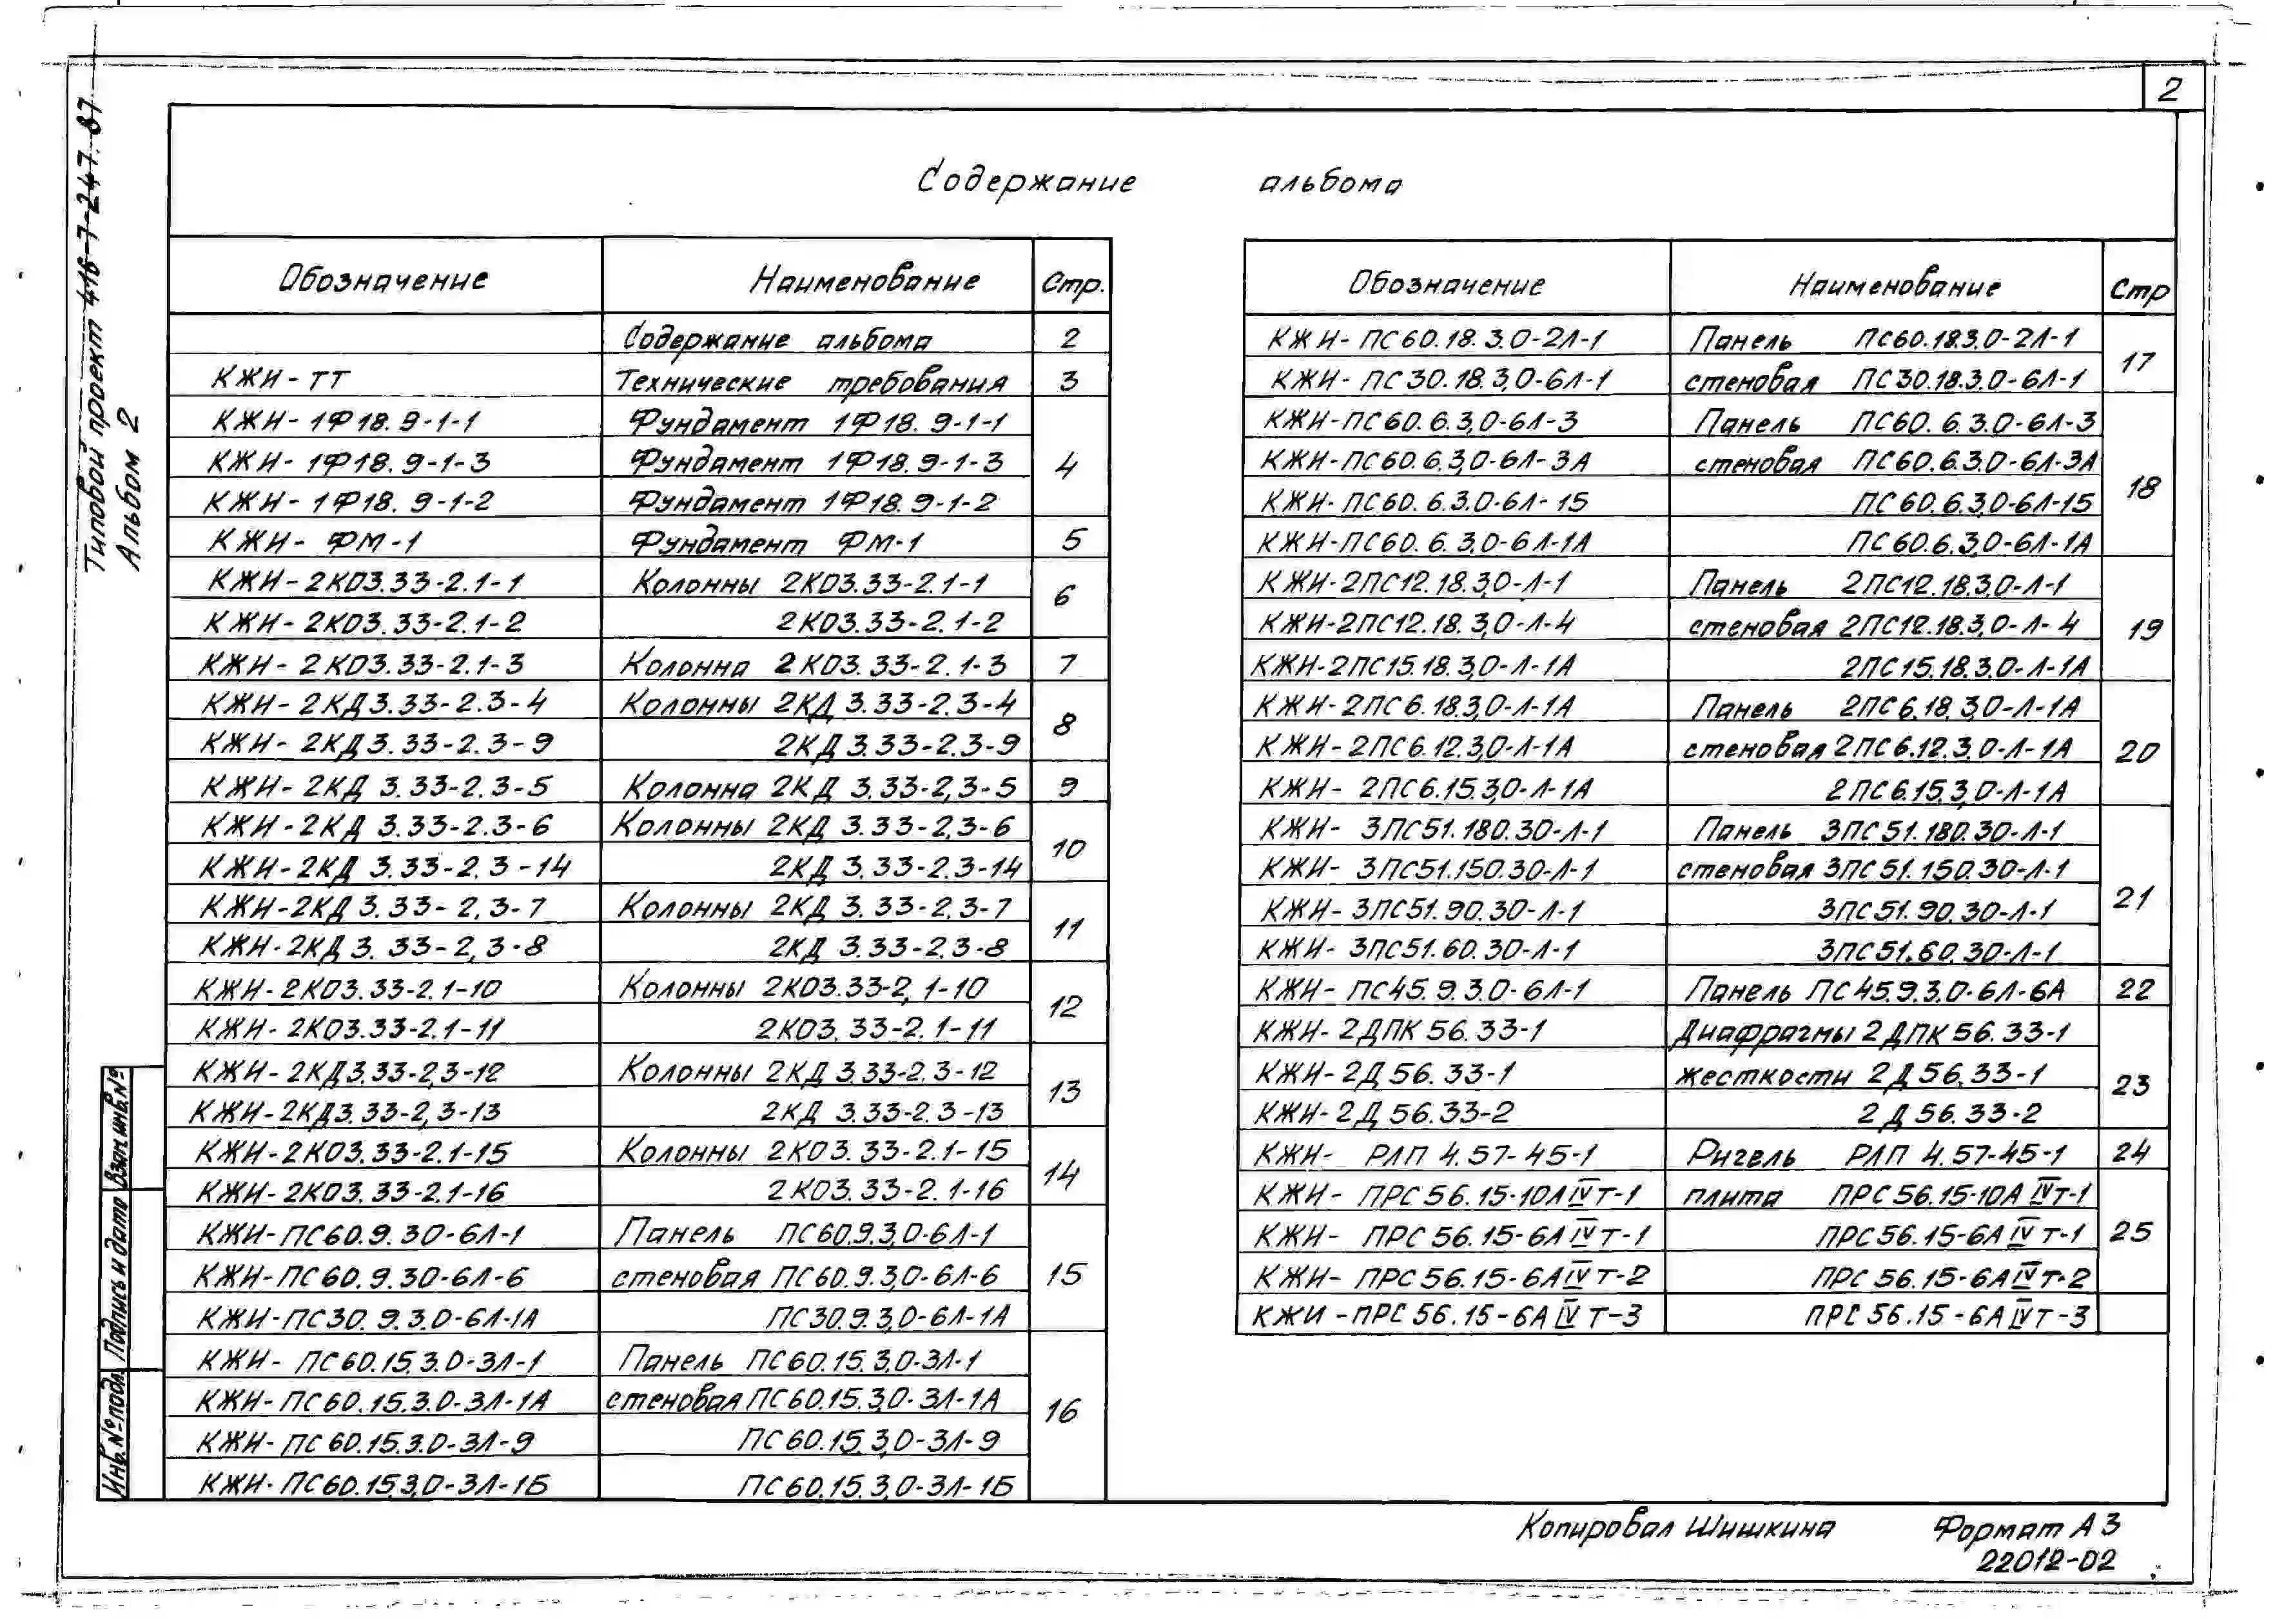 2
Типовой проект 416-7-247.87
Альбом 2
Содержание альбома
Обозначение Наименование Стр.
Содержание альбома 2
КЖИ-ТТ Технические требования 3
КЖИ-1Ф18.9-1-1 Фундамент 1Ф18.9-1-1
КЖИ-1Ф18.9-1-3 Фундамент 1Ф18.9-1-3 4
КЖИ-1Ф18.9-1-2 Фундамент 1Ф18.9-1-2
КЖИ-ФМ-1 Фундамент ФМ-1 5
КЖИ-2КО3.33-2.1-1 Колонны 2КО3.33-2.1-1 6
КЖИ-2КО3.33-2.1-2 2КО3.33-2.1-2
КЖИ-2КО3.33-2.1-3 Колонна 2КО3.33-2.1-3 7
КЖИ-2КД3.33-2.3-4 Колонны 2КД3.33-2.3-4 8
КЖИ-2КД3.33-2.3-9 2КД3.33-2.3-9
КЖИ-2КД 3.33-2.3-5 Колонна 2КД 3.33-2,3-5 9
КЖИ-2КД 3.33-2.3-6 Колонны 2КД 3.33-2,3-6 10
КЖИ-2КД 3.33-2.3-14 2КД 3.33-2.3-14
КЖИ-2КД3.33-2,3-7 Колонны 2КД 3.33-2,3-7 11
КЖИ-2КД3.33-2,3-8 2КД 3.33-2.3-8
КЖИ-2КО3.33-2.1-10 Колонны 2КО3.33-2,1-10 12
КЖИ-2КО3.33-2.1-11 2КО3.33-2.1-11
КЖИ-2КД3.33-2,3-12 Колонны 2КД 3.33-2.3-12 13
КЖИ-2КД3.33-2,3-13 2КД 3.33-2.3-13
КЖИ-2КО3.33-2.1-15 Колонны 2КО3.33-2.1-15 14
КЖИ-2КО3.33-2.1-16 2КО3.33-2.1-16
КЖИ-ПС60.9.30-6Л-1 Панель ПС60.9.3,0-6Л-1
КЖИ-ПС60.9.30-6Л-6 стеновая ПС60.9.3,0-6Л-6 15
КЖИ-ПС30.9.3.0-6Л-1А ПС30.9.3,0-6Л-1А
КЖИ-ПС60.15.3.0-3Л-1 Панель ПС60.15.3,0-3Л-1
КЖИ-ПС60.15.3.0-3Л-1А стеновая ПС60.15.3,0-3Л-1А 16
КЖИ-ПС60.15.3.0-3Л-9 ПС60.15.3,0-3Л-9
КЖИ-ПС60.15.3,0-3Л-1Б ПС60.15.3,0-3Л-1Б
Обозначение Наименование Стр
КЖИ-ПС60.18.3.0-2Л-1 Панель ПС60.18.3.0-2Л-1 17
КЖИ-ПС30.18.3,0-6Л-1 стеновая ПС30.18.3.0-6Л-1
КЖИ-ПС60.6.3,0-6Л-3 Панель ПС60.6.3.0-6Л-3
КЖИ-ПС60.6.3,0-6Л-3А стеновая ПС60.6.3.0-6Л-3А 18
КЖИ-ПС60.6.3.0-6Л-15 ПС60.6.3,0-6Л-15
КЖИ-ПС60.6.3,0-6Л-1А ПС60.6.3,0-6Л-1А
КЖИ-2ПС12.18.3,0-Л-1 Панель 2ПС12.18.3,0-Л-1
КЖИ-2ПС12.18.3,0-Л-4 стеновая 2ПС12.18.3,0-Л-4 19
КЖИ-2ПС15.18.3,0-Л-1А 2ПС15.18.3,0-Л-1А
КЖИ-2ПС6.18.3,0-Л-1А Панель 2ПС6.18.3,0-Л-1А
КЖИ-2ПС6.12.3,0-Л-1А стеновая 2ПС6.12.3,0-Л-1А 20
КЖИ-2ПС6.15.3,0-Л-1А 2ПС6.15.3,0-Л-1А
КЖИ-3ПС51.180.30-Л-1 Панель 3ПС51.180.30-Л-1
КЖИ-3ПС51.150.30-Л-1 стеновая 3ПС51.150.30-Л-1 21
КЖИ-3ПС51.90.30-Л-1 3ПС51.90.30-Л-1
КЖИ-3ПС51.60.30-Л-1 3ПС51.60.30-Л-1
КЖИ-ПС45.9.3.0-6Л-1 Панель ПС45.9.3,0-6Л-6А 22
КЖИ-2ДПК56.33-1 Диафрагмы 2ДПК56.33-1
КЖИ-2Д56.33-1 жесткости 2Д56.33-1 23
КЖИ-2Д56.33-2 2Д56.33-2
КЖИ-РЛП 4.57-45-1 Ригель РЛП 4.57-45-1 24
КЖИ-ПРС56.15-10АIVТ-1 плита ПРС56.15-10АIVТ-1
КЖИ-ПРС56.15-6АIVТ-1 ПРС56.15-6АIVТ-1 25
КЖИ-ПРС56.15-6АIVТ-2 ПРС56.15-6АIVТ-2
КЖИ-ПРС56.15-6АIVТ-3 ПРС56.15-6АIVТ-3
Взам.инв.№
Подпись и дата
Инв.№подл.
Копировал Шишкина Формат А3
22012-02